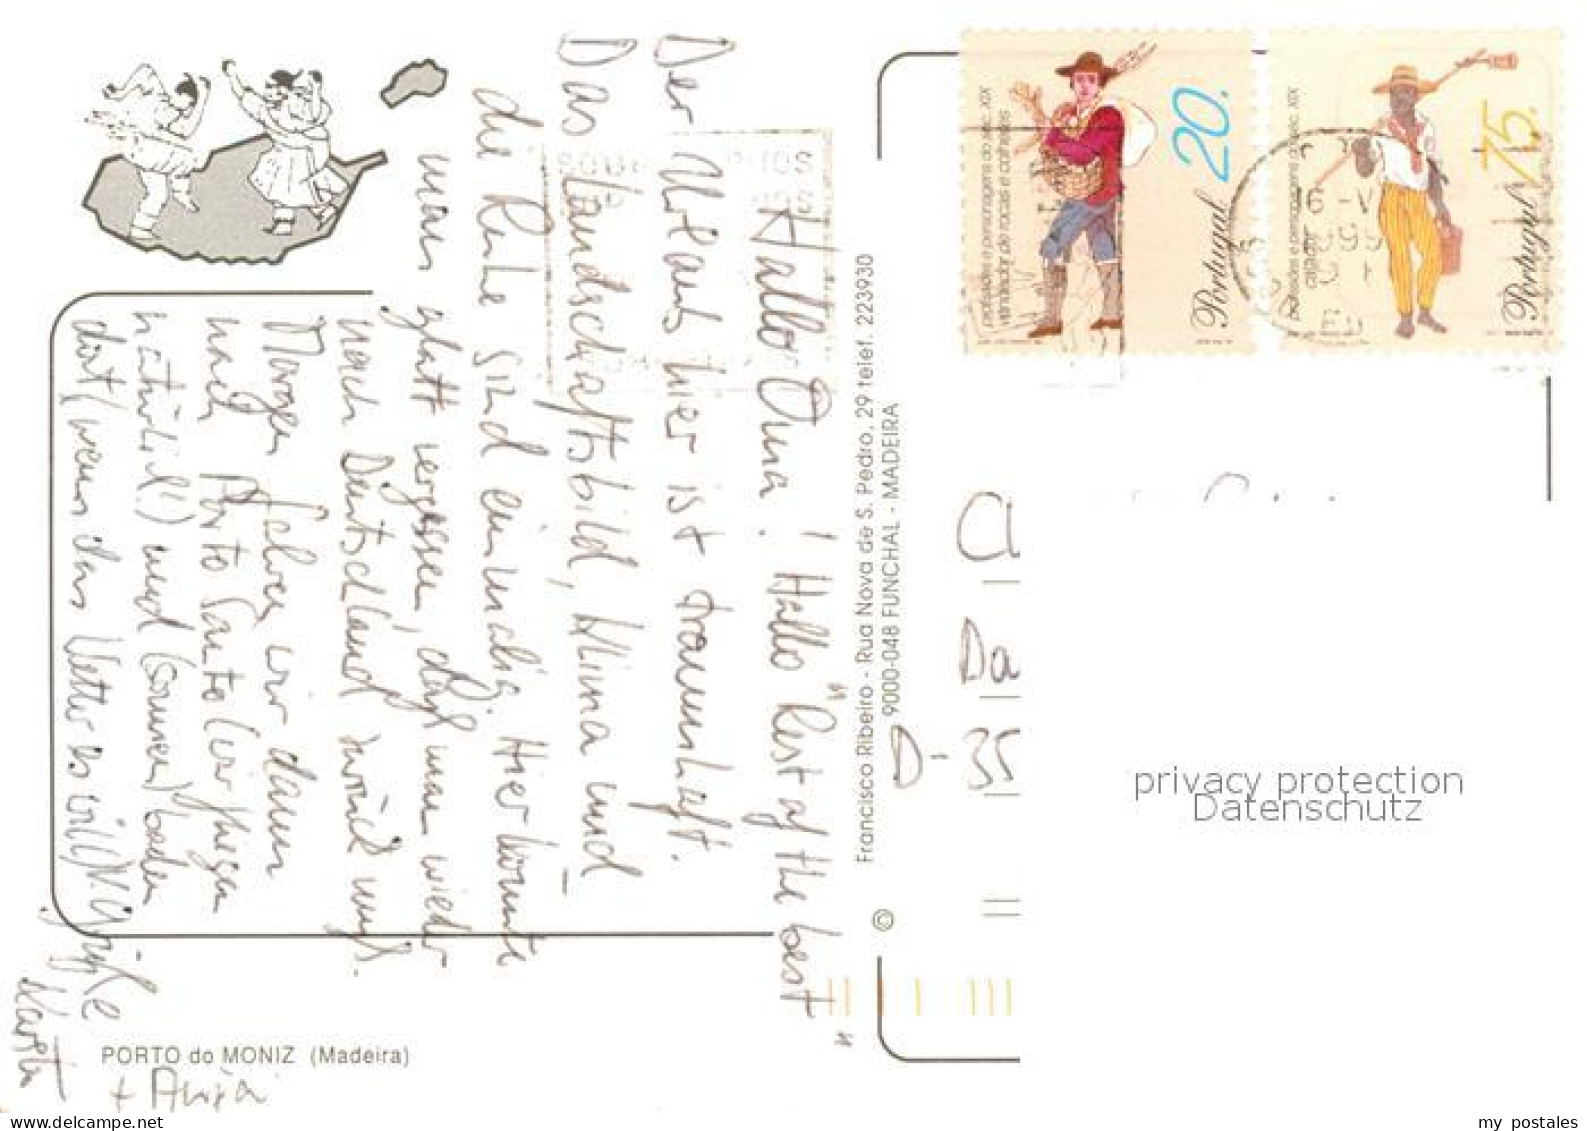 Hallo Oma! Hallo "Rest of the best"
Der Urlaub hier ist traumhaft.
Das Landschaftsbild, Klima und
die Ruhe sind einmalig. Hier könnte
man glatt vergessen, daß man wieder
nach Deutschland zurück muß.
Morgen fahren wir dann
nach Porto Santo (wir fliegen
natürlich!) und (sonnen) baden
dort (wenn das Wetter es will)
Grüße
Karsten
+ Anja
PORTO do MONIZ (Madeira)
© Francisco Ribeiro - Rua Nova de S. Pedro, 29 telef. 223930
9000-048 FUNCHAL - MADEIRA
profissões e personagens do séc. XIX
vendedor de rocas e colheres
20.
Portugal
profissões e personagens do séc. XIX
caiador
75.
Portugal
6-V
Da
D-35
privacy protection
Datenschutz
my postales